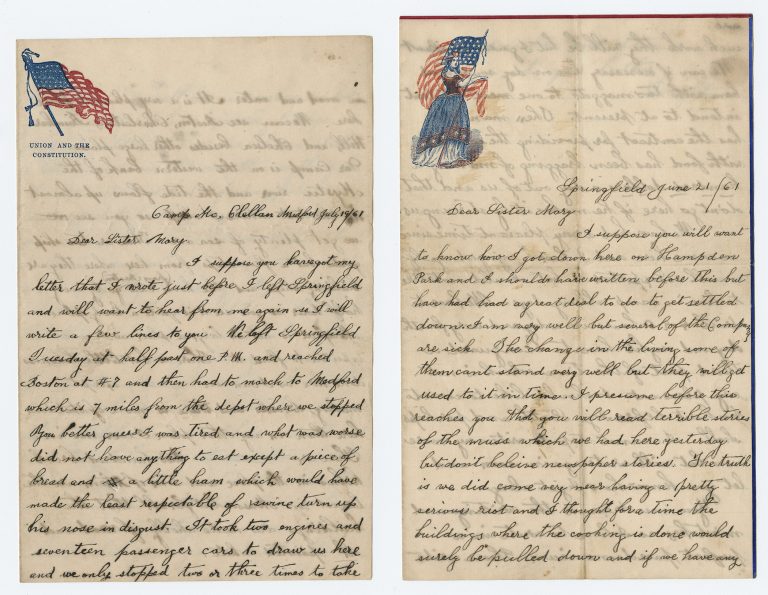 UNION AND THE
CONSTITUTION.
Camp Mc, Clellan Medford July 19/61
Dear Sister Mary.
I suppose you have got my
letter that I wrote just before I left Springfield
and will want to hear from me again so I will
write a few lines to you. We left Springfield
Tuesday at half past one P.M. and reached
Boston at # 7 and then had to march to Medford
which is 7 miles from the depot where we stopped
You better guess I was tired and what was worse
did not have anything to eat except a piece of
bread and a little ham which would have
made the least respectable of swine turn up
his nose in disgust. It took two engines and
seventeen passenger cars to draw us here
and we only stopped two or three times to take
Springfield June 21/61
Dear Sister Mary
I suppose you will want
to know how I got down here on Hampden
Park and I should have written before this but
have had had a great deal to do to get settled
down. I am very well but several of the Company
are sick. The change in the living some of
them cant stand very well but they will get
used to it in time. I presume before this
reaches you that you will read terrible stories
of the muss which we had here yesterday
but don't beleive newspaper stories. The truth
is we did come very near having a pretty
serious riot and I thought for a time the
buildings where the cooking is done would
surely be pulled down and if we have any